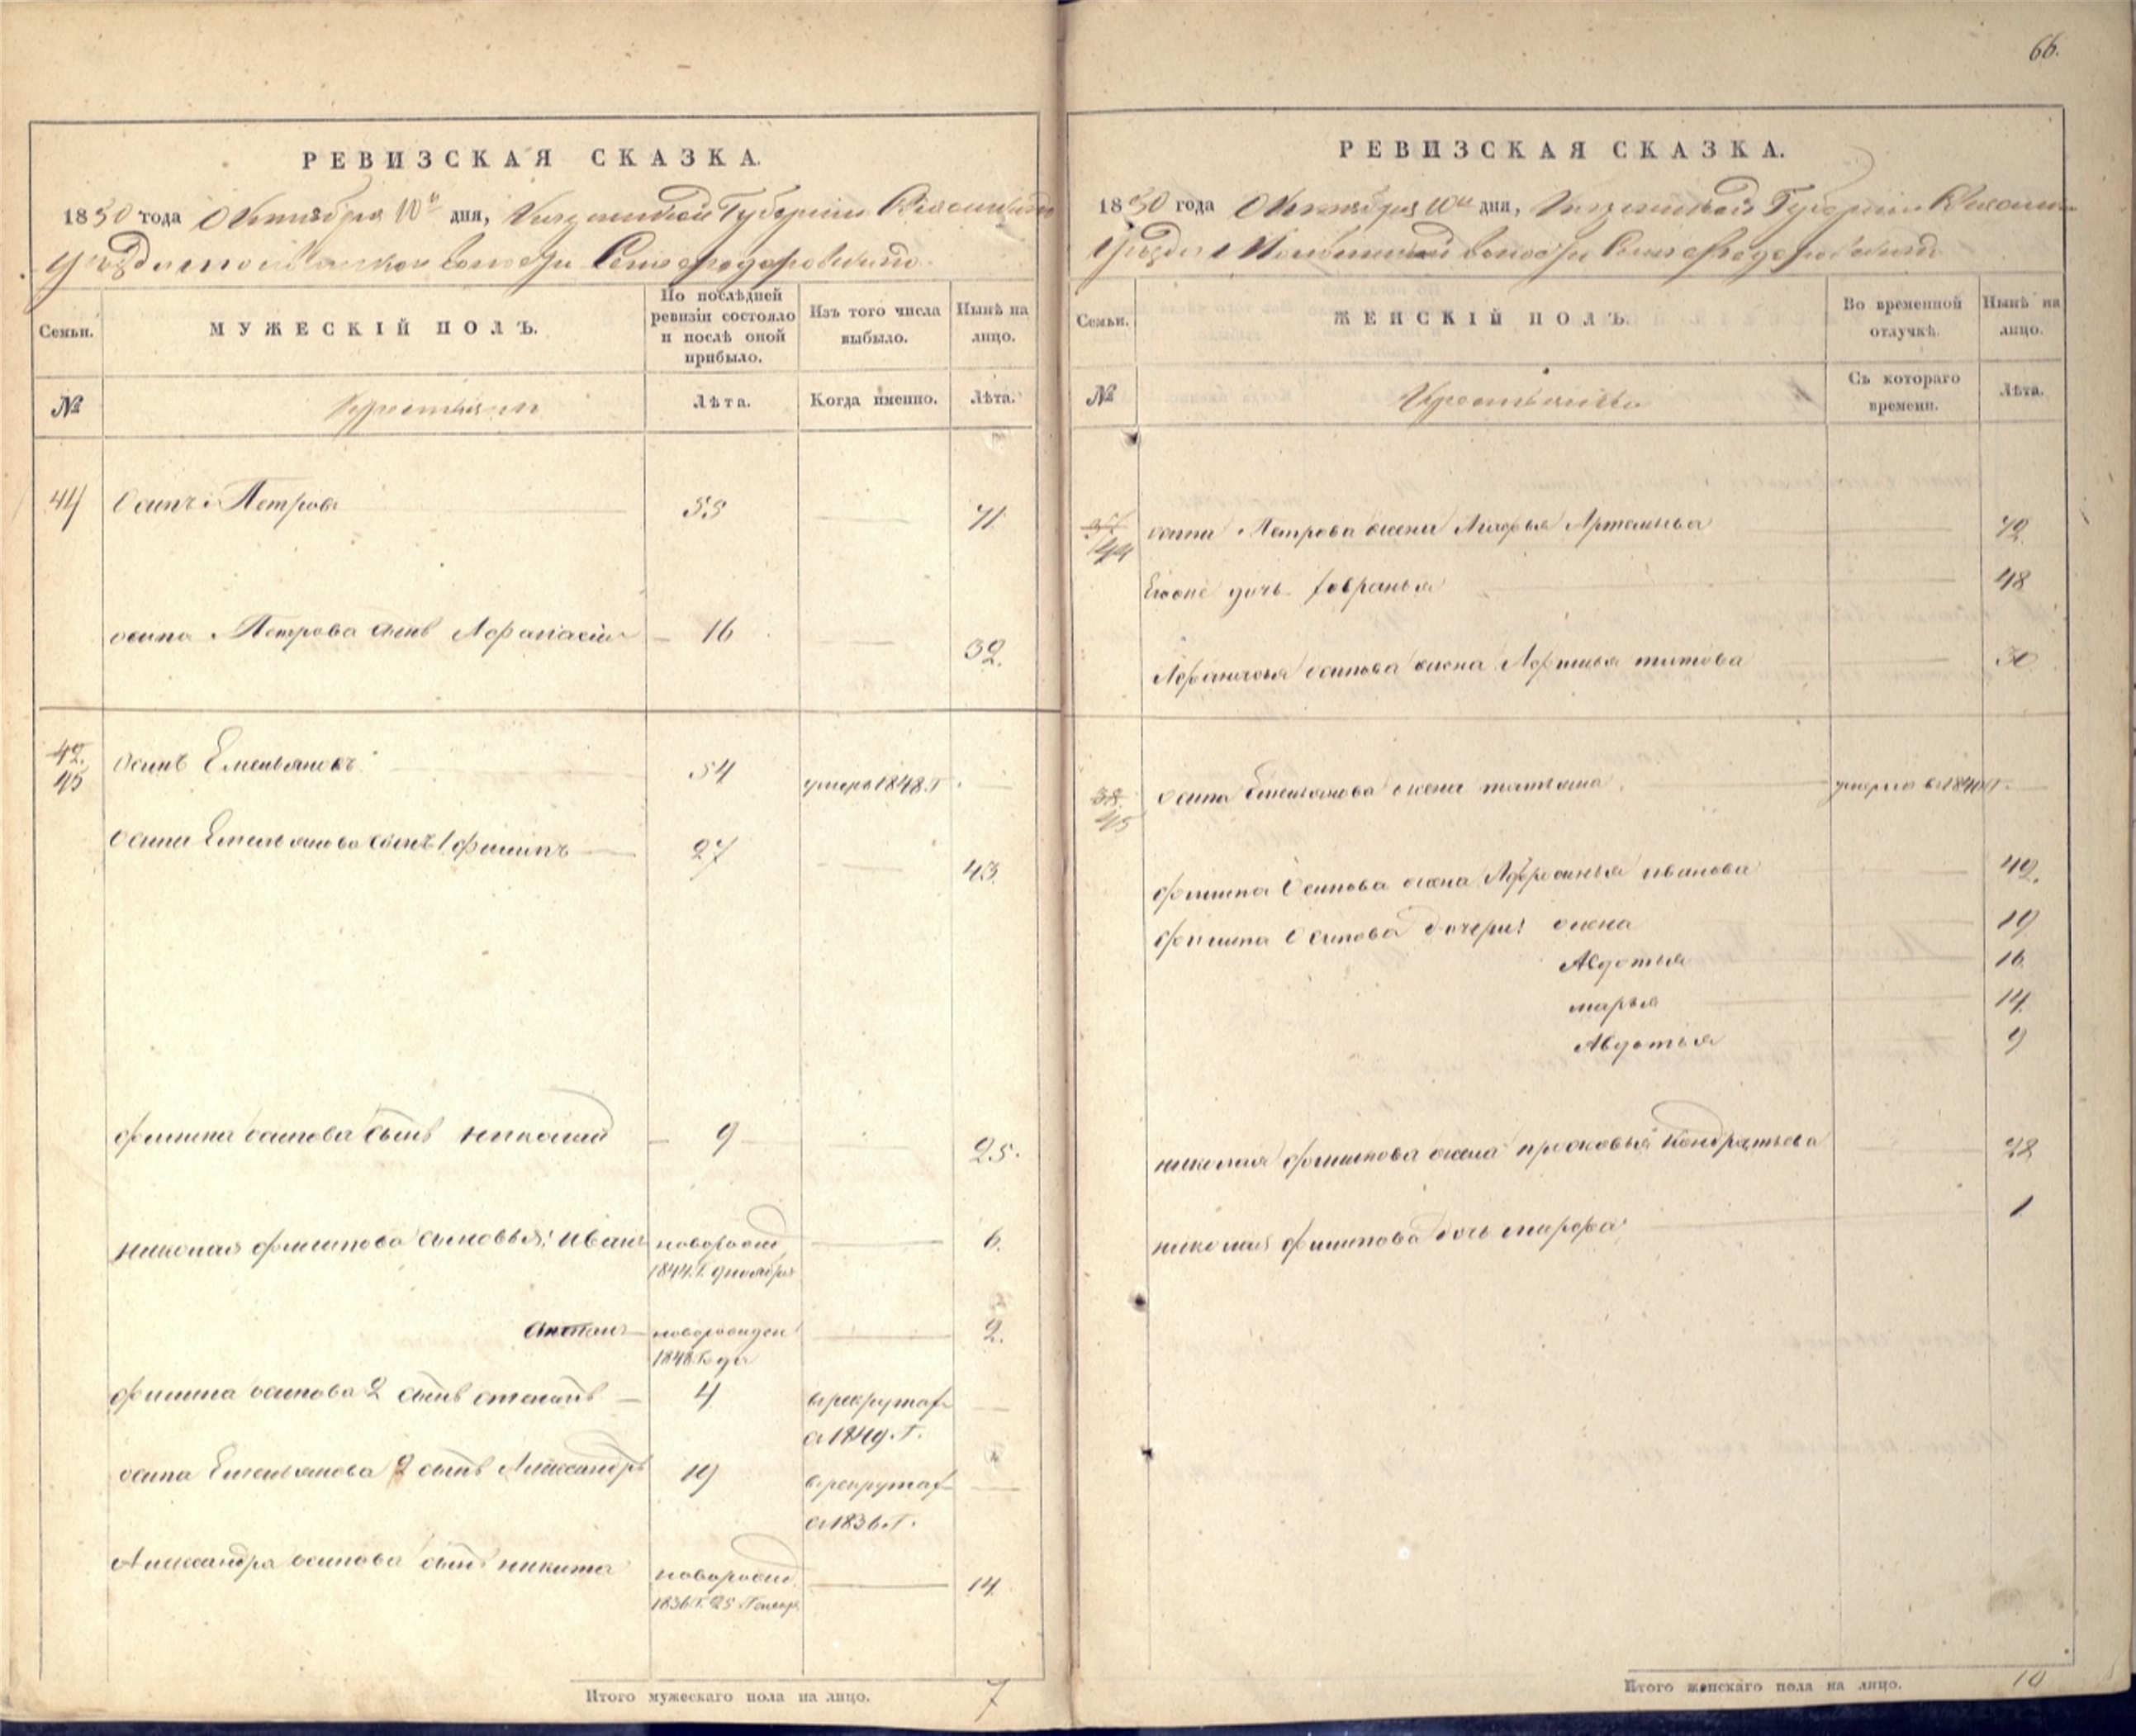 66.
РЕВИЗСКАЯ СКАЗКА.
1850 года Октября 10го дня, Казанской Губернии
Уезда волости Села Федоровскаго
Семьи.
МУЖЕСКІЙ ПОЛЪ.
По послѣдней ревизіи состояло и послѣ оной прибыло.
Изъ того числа выбыло.
Нынѣ на лицо.
№
Крестьян
Лѣта.
Когда именно.
Лѣта.
44 Осипъ Петровъ 53 71
осипа Петрова сынъ Афанасій 16 32.
42. 45 Осипъ Емельяновъ 54 умеръ 1848.Г.
Осипа Емельянова сынъ 1 филипъ 27 43.
филипа осипова сынъ николай 9 25.
николая филипова сыновья: иванъ новорожд 1844.Г. 6.
степанъ новорожден 1848 года 2.
филипа осипова 2 сынъ степанъ 4 в рекрутах с 1849.Г.
осипа Емельянова 2 сынъ Александръ 19 в рекрутах с 1836.Г.
Александра осипова сынъ никита новорожд. 1836.Г. 25 Генвар. 14.
Итого мужескаго пола на лицо. 7
РЕВИЗСКАЯ СКАЗКА.
1850 года Октября 10го дня, Казанской Губернии
Уезда волости Села Федоровскаго
Семьи.
ЖЕНСКІЙ ПОЛЪ.
Во временной отлучкѣ.
Нынѣ на лицо.
№
Съ котораго времени.
Лѣта.
44 осипа Петрова жена Агафья Артемьева 72
Егоже дочь 48
Афанасья осипова жена титова 30
38. 45 Осипа Емельянова жена татьяна умерла в 1840 Г.
филипа Осипова жена Афросинья иванова 42.
филипа Осипова дочери: 19
Авдотья 16.
марья 14.
Авдотья 9
николая филипова жена прасковья Кондратьева 28
николая филипова дочь марфа 1
Итого женскаго пола на лицо. 10